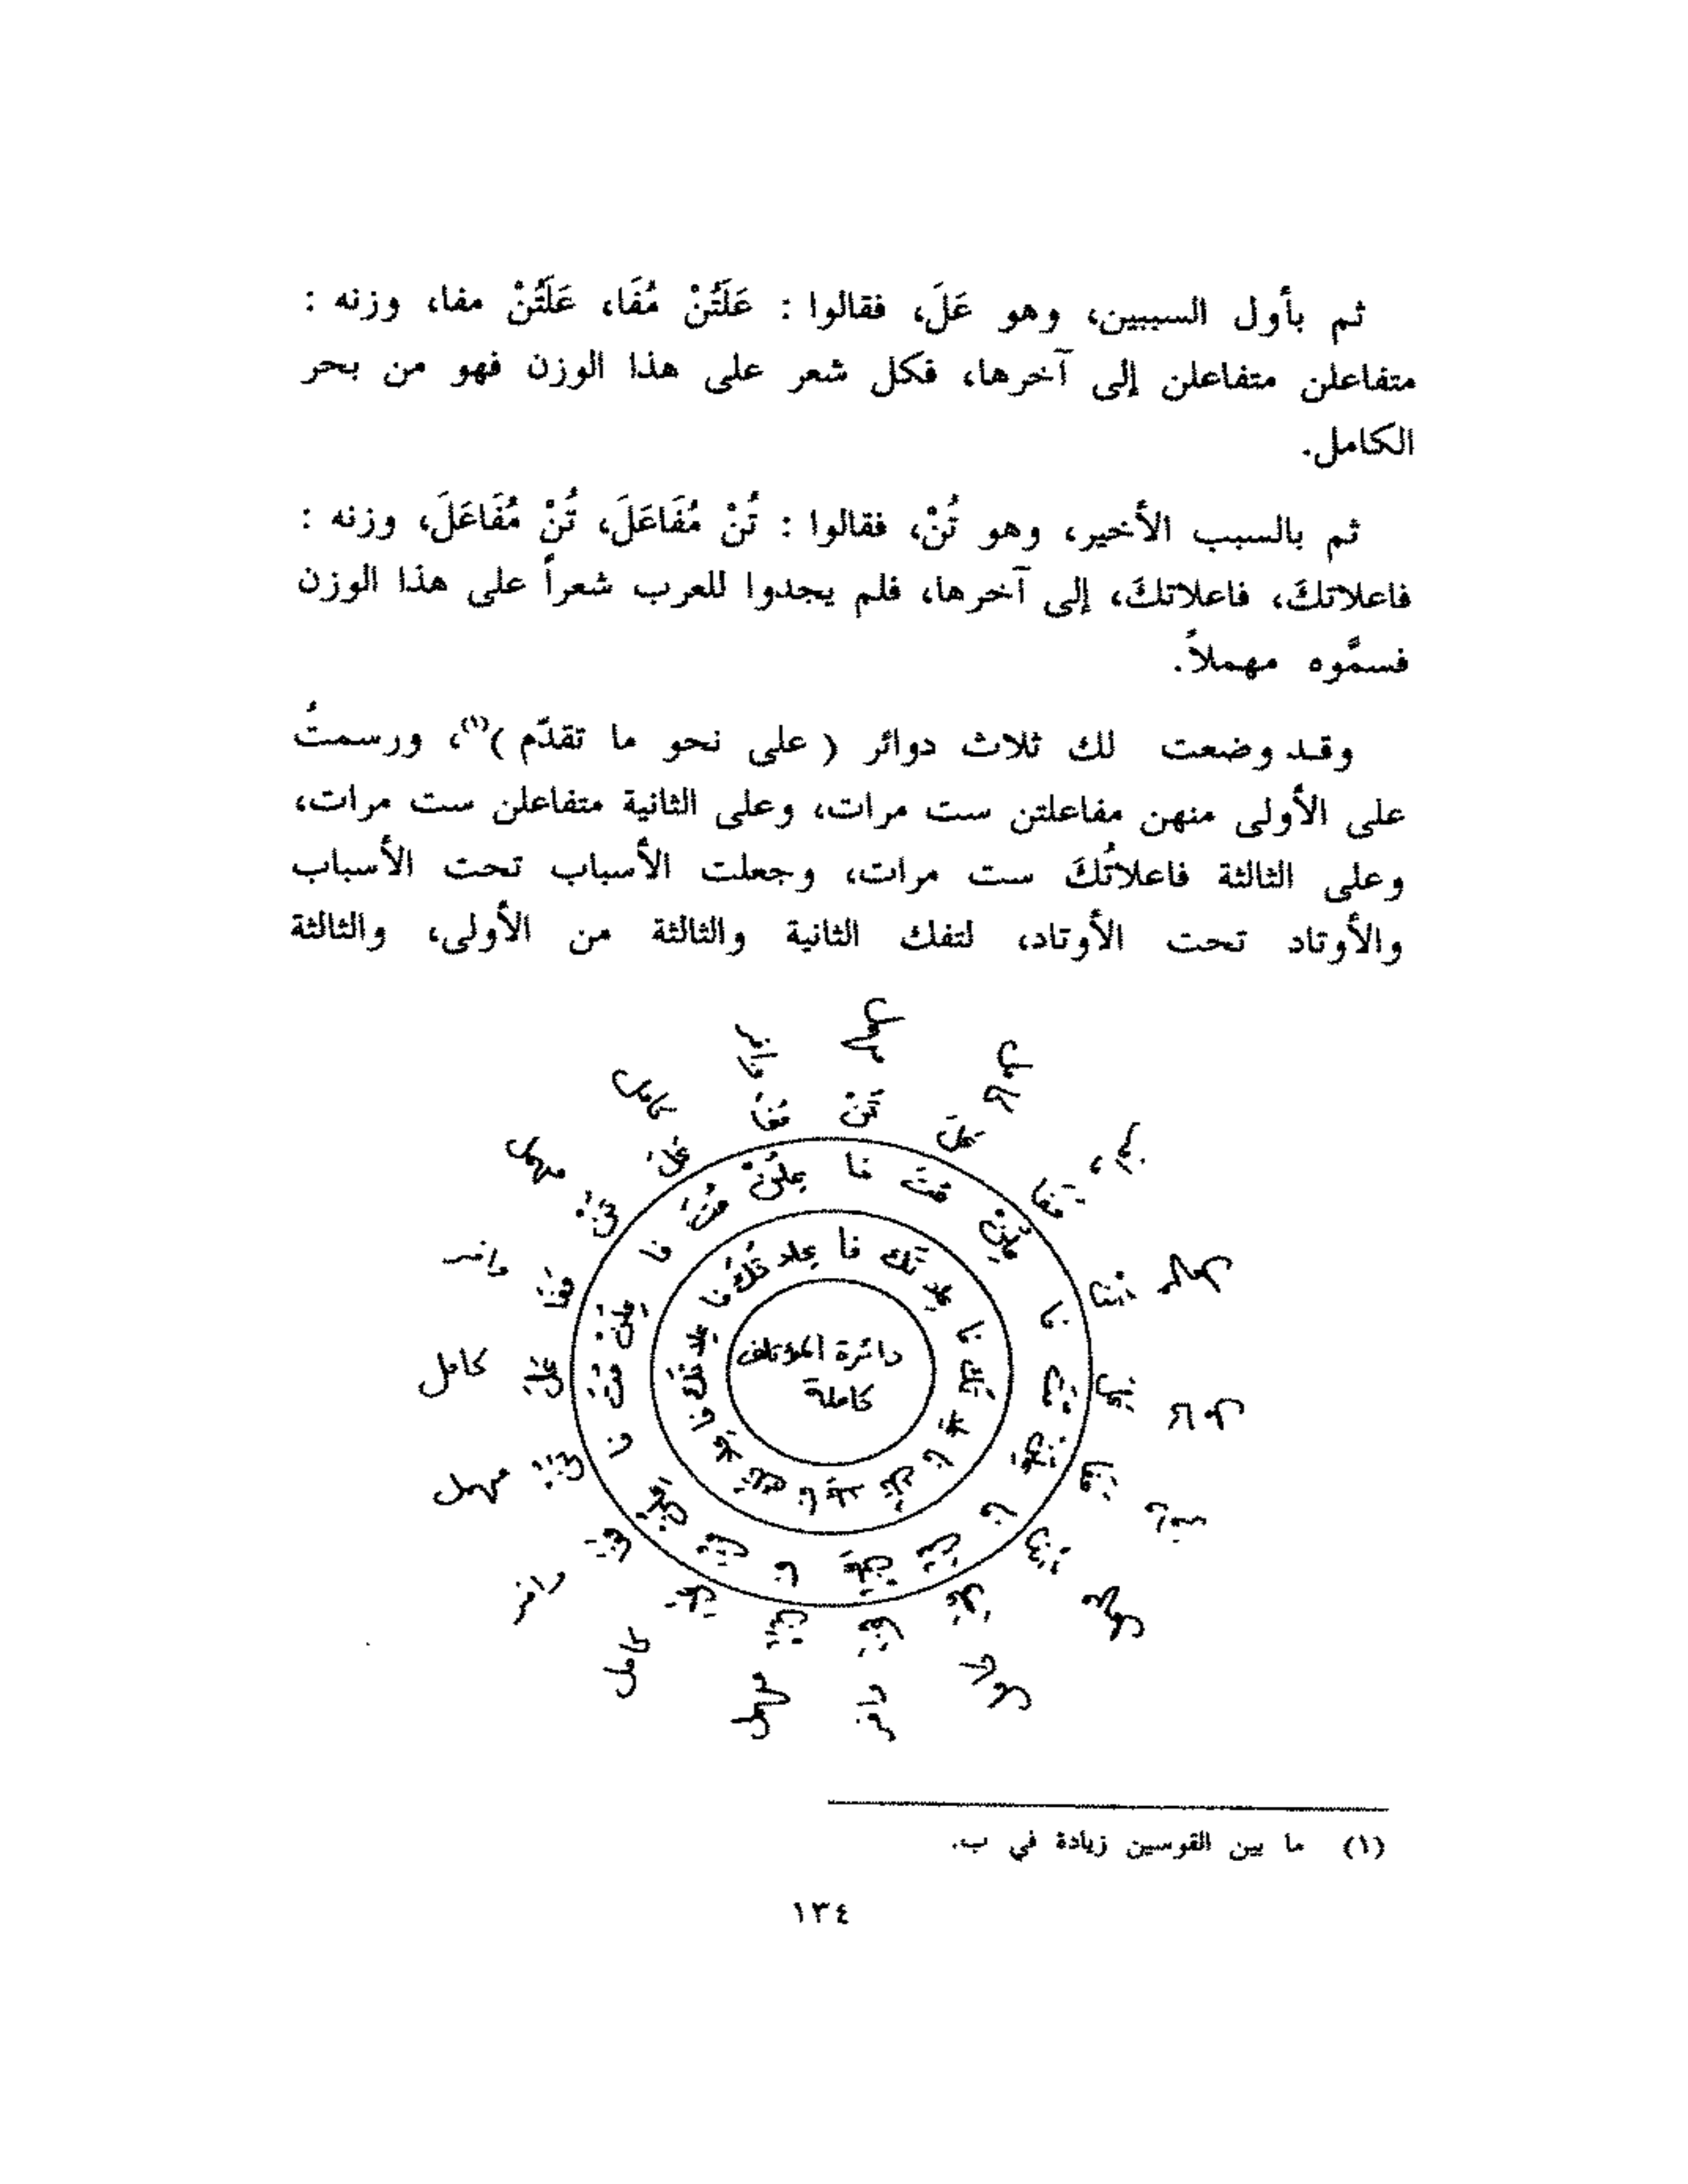 ثم بأول السببين، وهو عَلَ، فقالوا : عَلَتُنْ مُفَا، عَلَتُنْ مفا، وزنه :
متفاعلن متفاعلن إلى آخرها، فكل شعر على هذا الوزن فهو من بحر
الكامل.
ثم بالسبب الأخير، وهو تُنْ، فقالوا : تُنْ مُفَاعَلَ، تُنْ مُفَاعَلَ، وزنه :
فاعلاتكَ، فاعلاتكَ، إلى آخرها، فلم يجدوا للعرب شعراً على هذا الوزن
فسمَّوه مهملاً.
وقد وضعت لك ثلاث دوائر ( على نحو ما تقدّم )(١)، ورسمتُ
على الأولى منهن مفاعلتن ست مرات، وعلى الثانية متفاعلن ست مرات،
وعلى الثالثة فاعلاتُكَ ست مرات، وجعلت الأسباب تحت الأسباب
والأوتاد تحت الأوتاد، لتفك الثانية والثالثة من الأولى، والثالثة
مهمل
كامل
وافر
مهمل
كامل
وافر
مهمل
كامل
وافر
مهمل
كامل
وافر
مهمل
كامل
وافر
مهمل
كامل
وافر
دائرة المؤتلف
كاملة
(١) ما بين القوسين زيادة في ب.
١٣٤